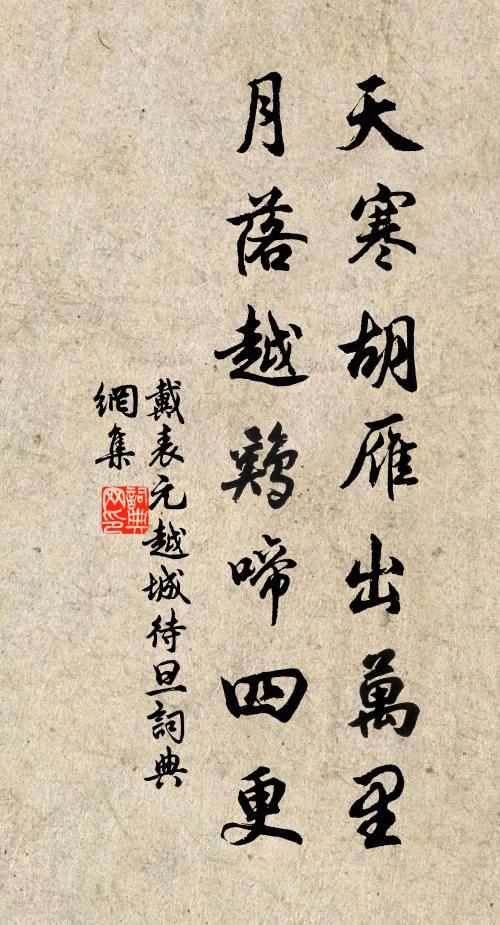 天寒胡雁出萬里
月落越鷄啼四更
戴表元越城待旦詞典
網集
詞典
网印